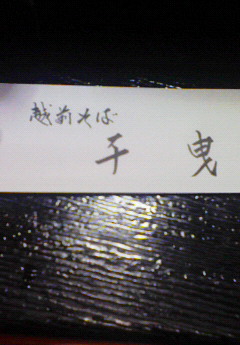 越前そば
千曳